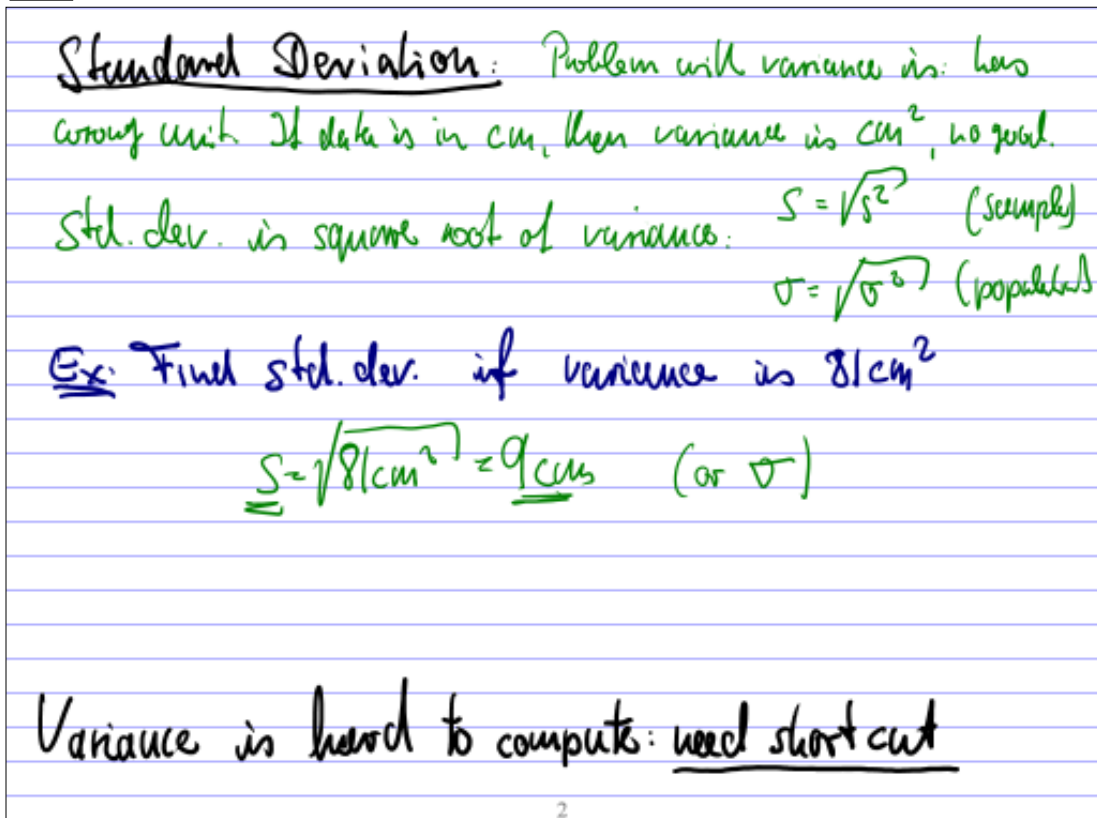 Standard Deviation: Problem with variance is: has
wrong unit. If data is in cm, then variance is cm², no good.
Std. dev. is square root of variance: s = √s² (sample)
σ = √σ² (population)
Ex: Find std. dev. if variance is 81cm²
s = √81cm² = 9cm (or σ)
Variance is hard to compute: need short cut
2